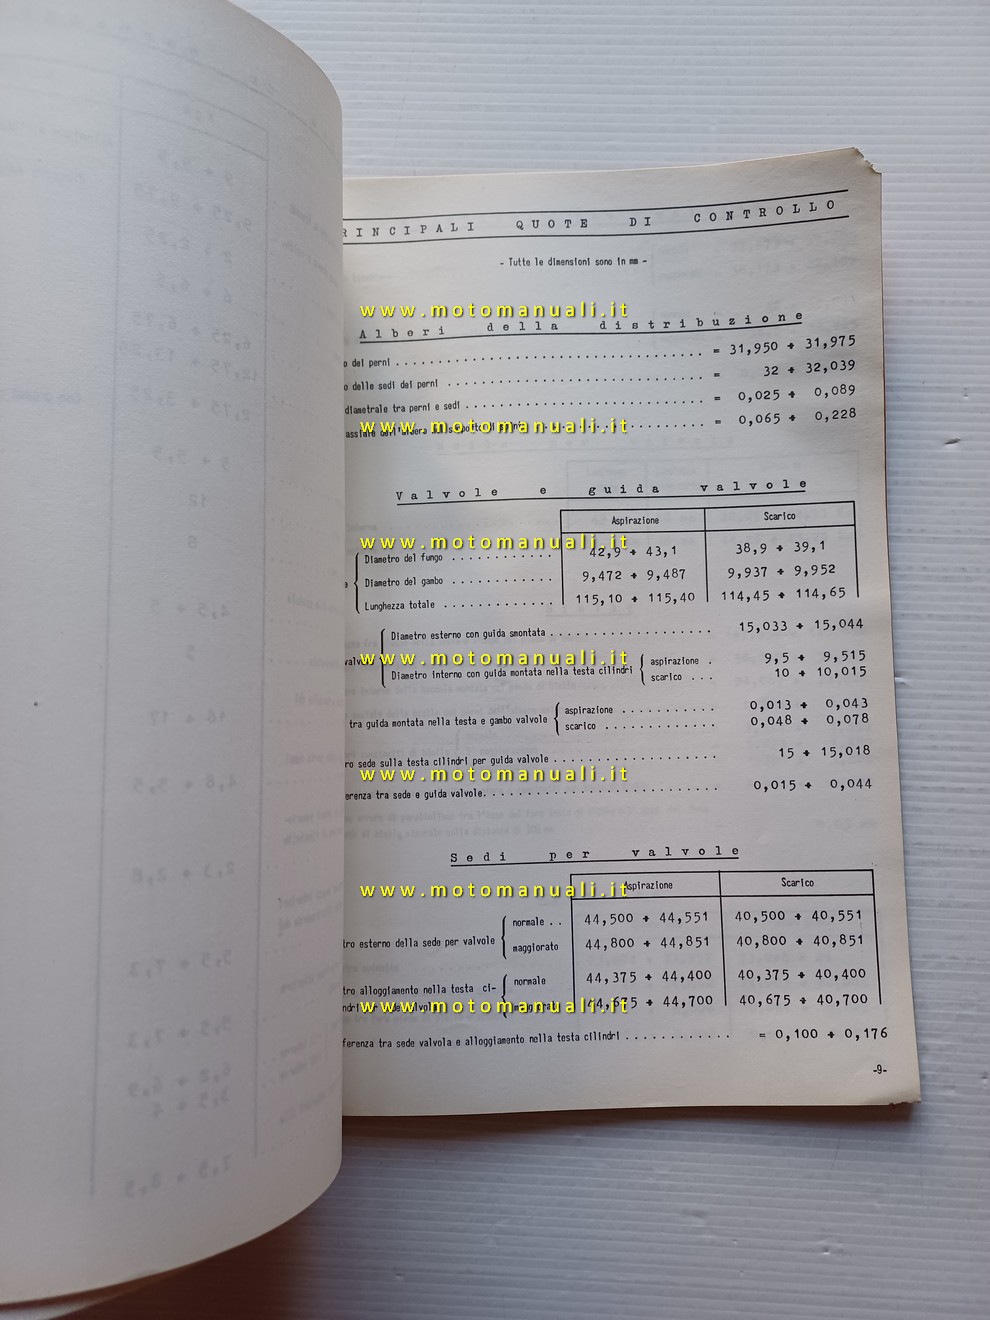 RINCIPALI QUOTE DI CONTROLLO
- Tutte le dimensioni sono in mm -
www.motomanuali.it
Alberi della distribuzione
o dei perni = 31,950 ÷ 31,975
o delle sedi dei perni = 32 ÷ 32,039
diametrale tra perni e sedi = 0,025 ÷ 0,089
assiale dell'albera = 0,065 ÷ 0,228
www.motomanuali.it
Valvole e guida valvole
Aspirazione Scarico
www.motomanuali.it
Diametro del fungo 42,9 ÷ 43,1 38,9 ÷ 39,1
e Diametro del gambo 9,472 ÷ 9,487 9,937 ÷ 9,952
Lunghezza totale 115,10 ÷ 115,40 114,45 ÷ 114,65
Diametro esterno con guida smontata 15,033 ÷ 15,044
valvole
www.motomanuali.it
Diametro interno con guida montata nella testa cilindri aspirazione 9,5 ÷ 9,515
scarico 10 ÷ 10,015
tra guida montata nella testa e gambo valvole aspirazione 0,013 ÷ 0,043
scarico 0,048 ÷ 0,078
ro sede sulla testa cilindri per guida valvole 15 ÷ 15,018
www.motomanuali.it
erenza tra sede e guida valvole 0,015 ÷ 0,044
Sedi per valvole
Aspirazione Scarico
www.motomanuali.it
tro esterno della sede per valvole normale 44,500 ÷ 44,551 40,500 ÷ 40,551
maggiorato 44,800 ÷ 44,851 40,800 ÷ 40,851
tro alloggiamento nella testa ci- normale 44,375 ÷ 44,400 40,375 ÷ 40,400
ndri per sede valvole maggiorato 44,675 ÷ 44,700 40,675 ÷ 40,700
www.motomanuali.it
ferenza tra sede valvola e alloggiamento nella testa cilindri = 0,100 ÷ 0,176
-9-